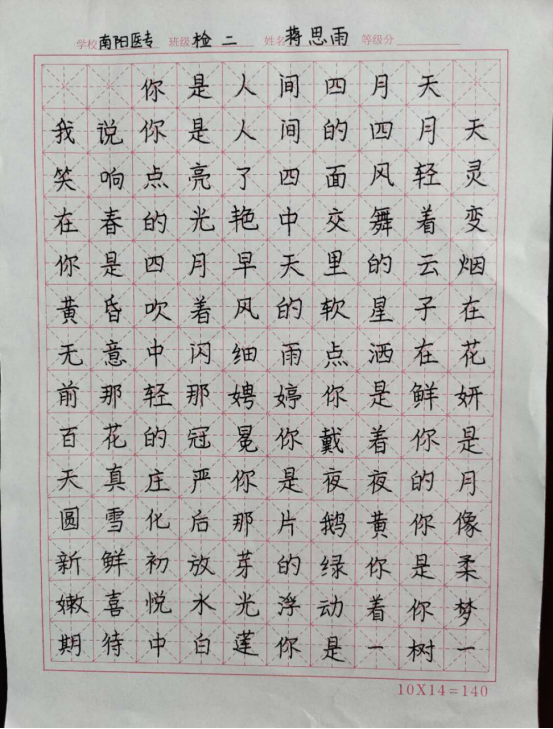 学校 南阳医专 班级 检二 姓名 蒋思雨 等级分
你是人间四月天
我说你是人间的四月天
笑响点亮了四面风轻灵
在春的光艳中交舞着变
你是四月早天里的云烟
黄昏吹着风的软星子在
无意中闪细雨点洒在花
前那轻那娉婷你是鲜妍
百花的冠冕你戴着你是
天真庄严你是夜夜的月
圆雪化后那片鹅黄你像
新鲜初放芽的绿你是柔
嫩喜悦水光浮动着你梦
期待中白莲你是一树一
10X14=140